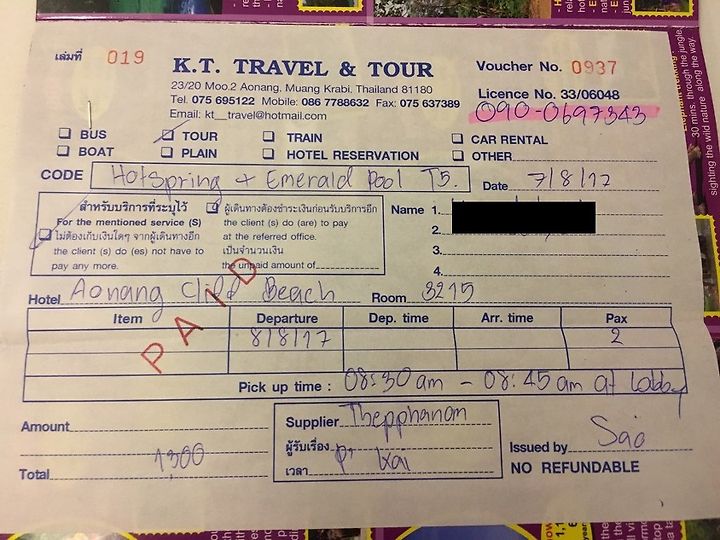 เล่มที่ 019
K.T. TRAVEL & TOUR
Voucher No. 0937
23/20 Moo.2 Aonang, Muang Krabi, Thailand 81180
Licence No. 33/06048
Tel. 075 695122 Mobile: 086 7788632 Fax: 075 637389
090-0697343
Email: kt__travel@hotmail.com
BUS TOUR TRAIN CAR RENTAL
BOAT PLAIN HOTEL RESERVATION OTHER
CODE Hotspring + Emerald Pool T5. Date 7/8/17
สำหรับบริการที่ระบุไว้
For the mentioned service (S)
ไม่ต้องเก็บเงินใดๆ จากผู้เดินทางอีก
the client (s) do (es) not have to
pay any more.
ผู้เดินทางต้องชำระเงินก่อนรับบริการอีก
the client (s) do (are) to pay
at the referred office.
เป็นจำนวนเงิน
the unpaid amount of
Name 1.
2.
3.
4.
Hotel Aonang Cliff Beach Room 3215
PAID
Item Departure Dep. time Arr. time Pax
8/8/17 2
Pick up time : 08:30 am - 08:45 am at Lobby
Amount
Total 1,300
Supplier Thepphanom
ผู้รับเรื่อง
เวลา P' Kai
Issued by Sao
NO REFUNDABLE
30 mins. through the jungle,
sighting the wild nature along the way.